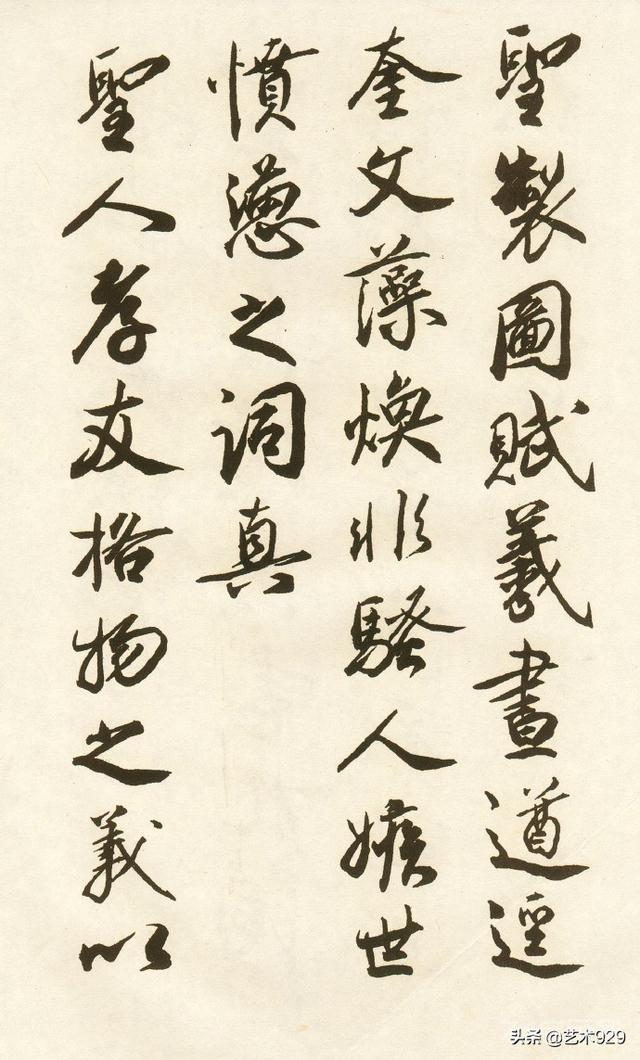 聖製圖賦羲畫遒逕
奎文藻煥非騷人嫉世
憤懣之詞真
聖人孝友格物之義以
头条 @艺术929